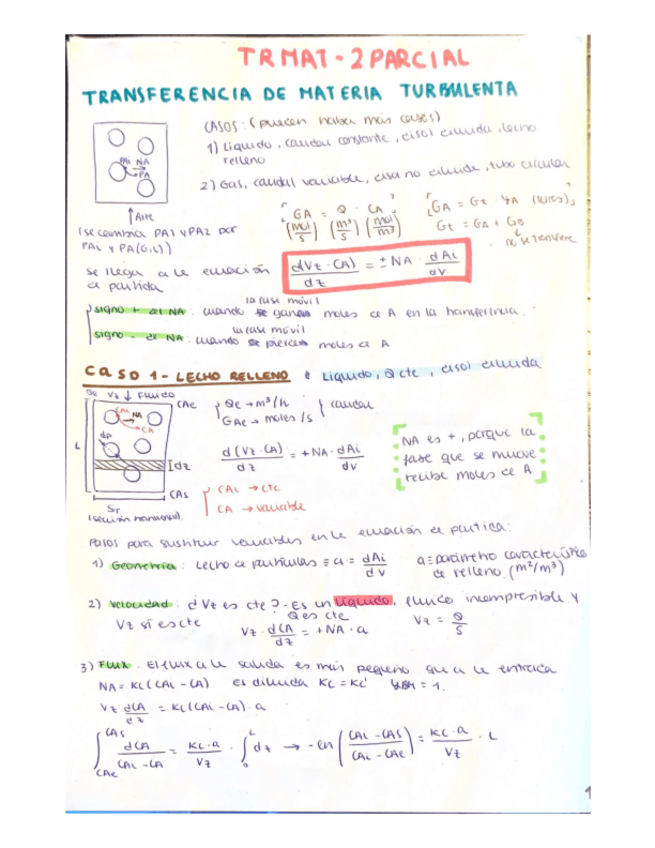 TRMAT - 2 PARCIAL
TRANSFERENCIA DE MATERIA TURBULENTA
CASOS: (pueden haber más casos)
1) Líquido, caudal constante, disol diluida, lecho
relleno
2) Gas, caudal variable, disol no diluida, tubo circular
PAi NA
PA
↑ Aire
(se cambia PA1 y PA2 por
PAi y PA(G,L))
GA = Q · CA
(mol/s) (m³/s) (mol/m³)
GA = Gt · yA (gases)
Gt = GA + GB
no se transfiere
se llega a la ecuación
de partida
d(Vz · CA)/dz = ± NA · dAi/dv
la fase móvil
signo + de NA: cuando se gana moles de A en la transferencia.
la fase móvil
signo - de NA: cuando se pierde moles de A
CASO 1 - LECHO RELLENO: Líquido, Q cte, disol diluida
Vz ↓ Fluido
CAe
CAi NA
CA
dp
L
dz
CAs
ST
(sección transversal).
Qe → m³/h
GAe → moles/s
caudal
d(Vz · CA)/dz = + NA · dAi/dv
NA es +, porque la
fase que se mueve
recibe moles de A
CAi → cte
CA → variable
Pasos para sustituir variables en la ecuación de partida:
1) Geometría: Lecho de partículas ≡ a = dAi/dv
a ≡ parámetro característico
de relleno (m²/m³)
2) Velocidad: ¿Vz es cte? - Es un líquido, fluido incompresible y
Q es cte
Vz sí es cte
Vz · dCA/dz = + NA · a
Vz = Q/S
3) Flux. El flux a la salida es más pequeño que a la entrada
NA = KL(CAi - CA) Es diluida KL = KL' = 1.
Vz dCA/dz = KL(CAi - CA) · a
∫CAe^CAs dCA/(CAi - CA) = KL·a/Vz · ∫0^L dz → - ln((CAi - CAs)/(CAi - CAe)) = KL·a/Vz · L
1